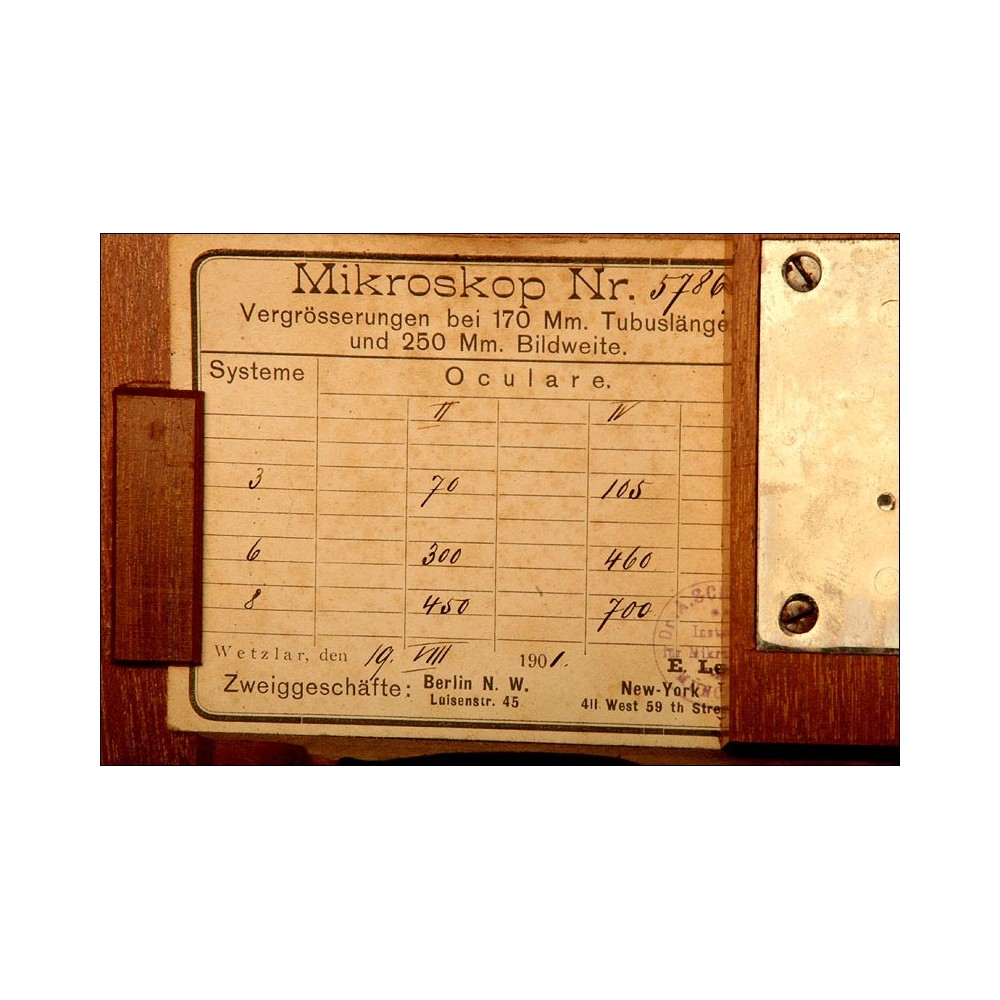 Mikroskop Nr. 5786
Vergrösserungen bei 170 Mm. Tubuslänge
und 250 Mm. Bildweite.
Systeme Oculare.
II IV
3 70 105
6 300 460
8 450 700
Dr. A. & C.
Inst
für Mikr
Wetzlar, den 19. VIII 1901.
E. Le
Zweiggeschäfte: Berlin N. W. New-York
Luisenstr. 45 411 West 59 th Stre